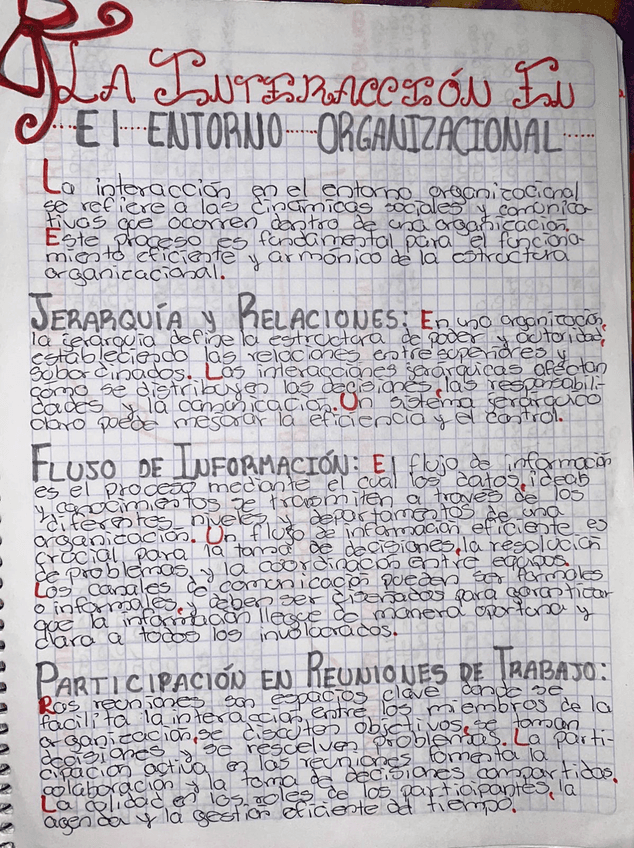 LA INTERACCIÓN EN
El ENTORNO ORGANIZACIONAL
La interacción en el entorno organizacional
se refiere a las dinámicas sociales y comunica-
tivas que ocurren dentro de una organización.
Este proceso es fundamental para el funciona-
miento eficiente y armónico de la estructura
organizacional.
JERARQUÍA y RELACIONES: En una organización,
la jerarquía define la estructura de poder y autoridad,
estableciendo las relaciones entre superiores y
subordinados. Las interacciones jerárquicas afectan
cómo se distribuyen las decisiones, las responsabili-
dades y la comunicación. Un sistema jerárquico
claro puede mejorar la eficiencia y el control.
FLUJO DE INFORMACIÓN: El flujo de información
es el proceso mediante el cual los datos, ideas
y conocimientos se transmiten a través de los
diferentes niveles y departamentos de una
organización. Un flujo de información eficiente es
crucial para la toma de decisiones, la resolución
de problemas y la coordinación entre equipos.
Los canales de comunicación pueden ser formales
o informales, y deben ser diseñados para garantizar
que la información llegue de manera oportuna y
clara a todos los involucrados.
PARTICIPACIÓN EN REUNIONES DE TRABAJO:
Ras reuniones son espacios clave donde se
facilita la interacción entre los miembros de la
organización, se discuten objetivos, se toman
decisiones y se resuelven problemas. La parti-
cipación activa en las reuniones fomenta la
colaboración y la toma de decisiones compartidas.
La calidad en los roles de los participantes, la
agenda y la gestión eficiente del tiempo.